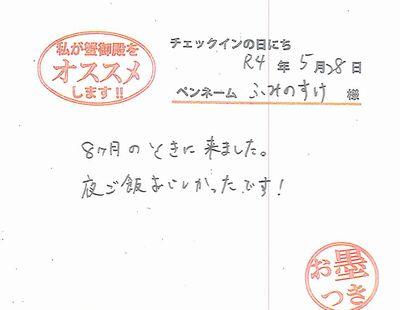 私が蟹御殿を
オススメ
します!!
チェックインの日にち
R4 年 5 月 28 日
ペンネーム ふみのすけ 様
8ヶ月のときに来ました。
夜ご飯おいしかったです!
お墨
つき